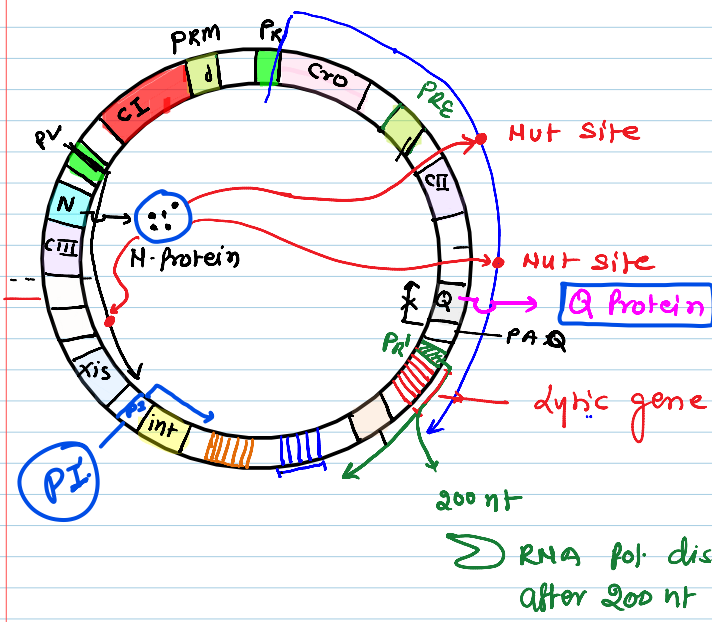 PRM
PR
d
Cro
PRE
CI
Nut site
PV
CII
N
N-Protein
CIII
Nut site
Q
Q Protein
PAQ
PR'
xis
Lytic gene
int
PI
200 nt
RNA Pol. dis
after 200 nt